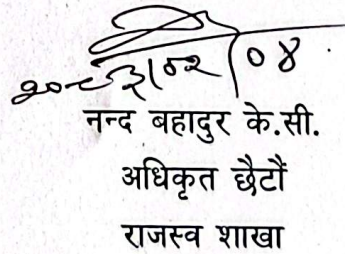 २०८३/०२/०४
नन्द बहादुर के.सी.
अधिकृत छैटौं
राजस्व शाखा